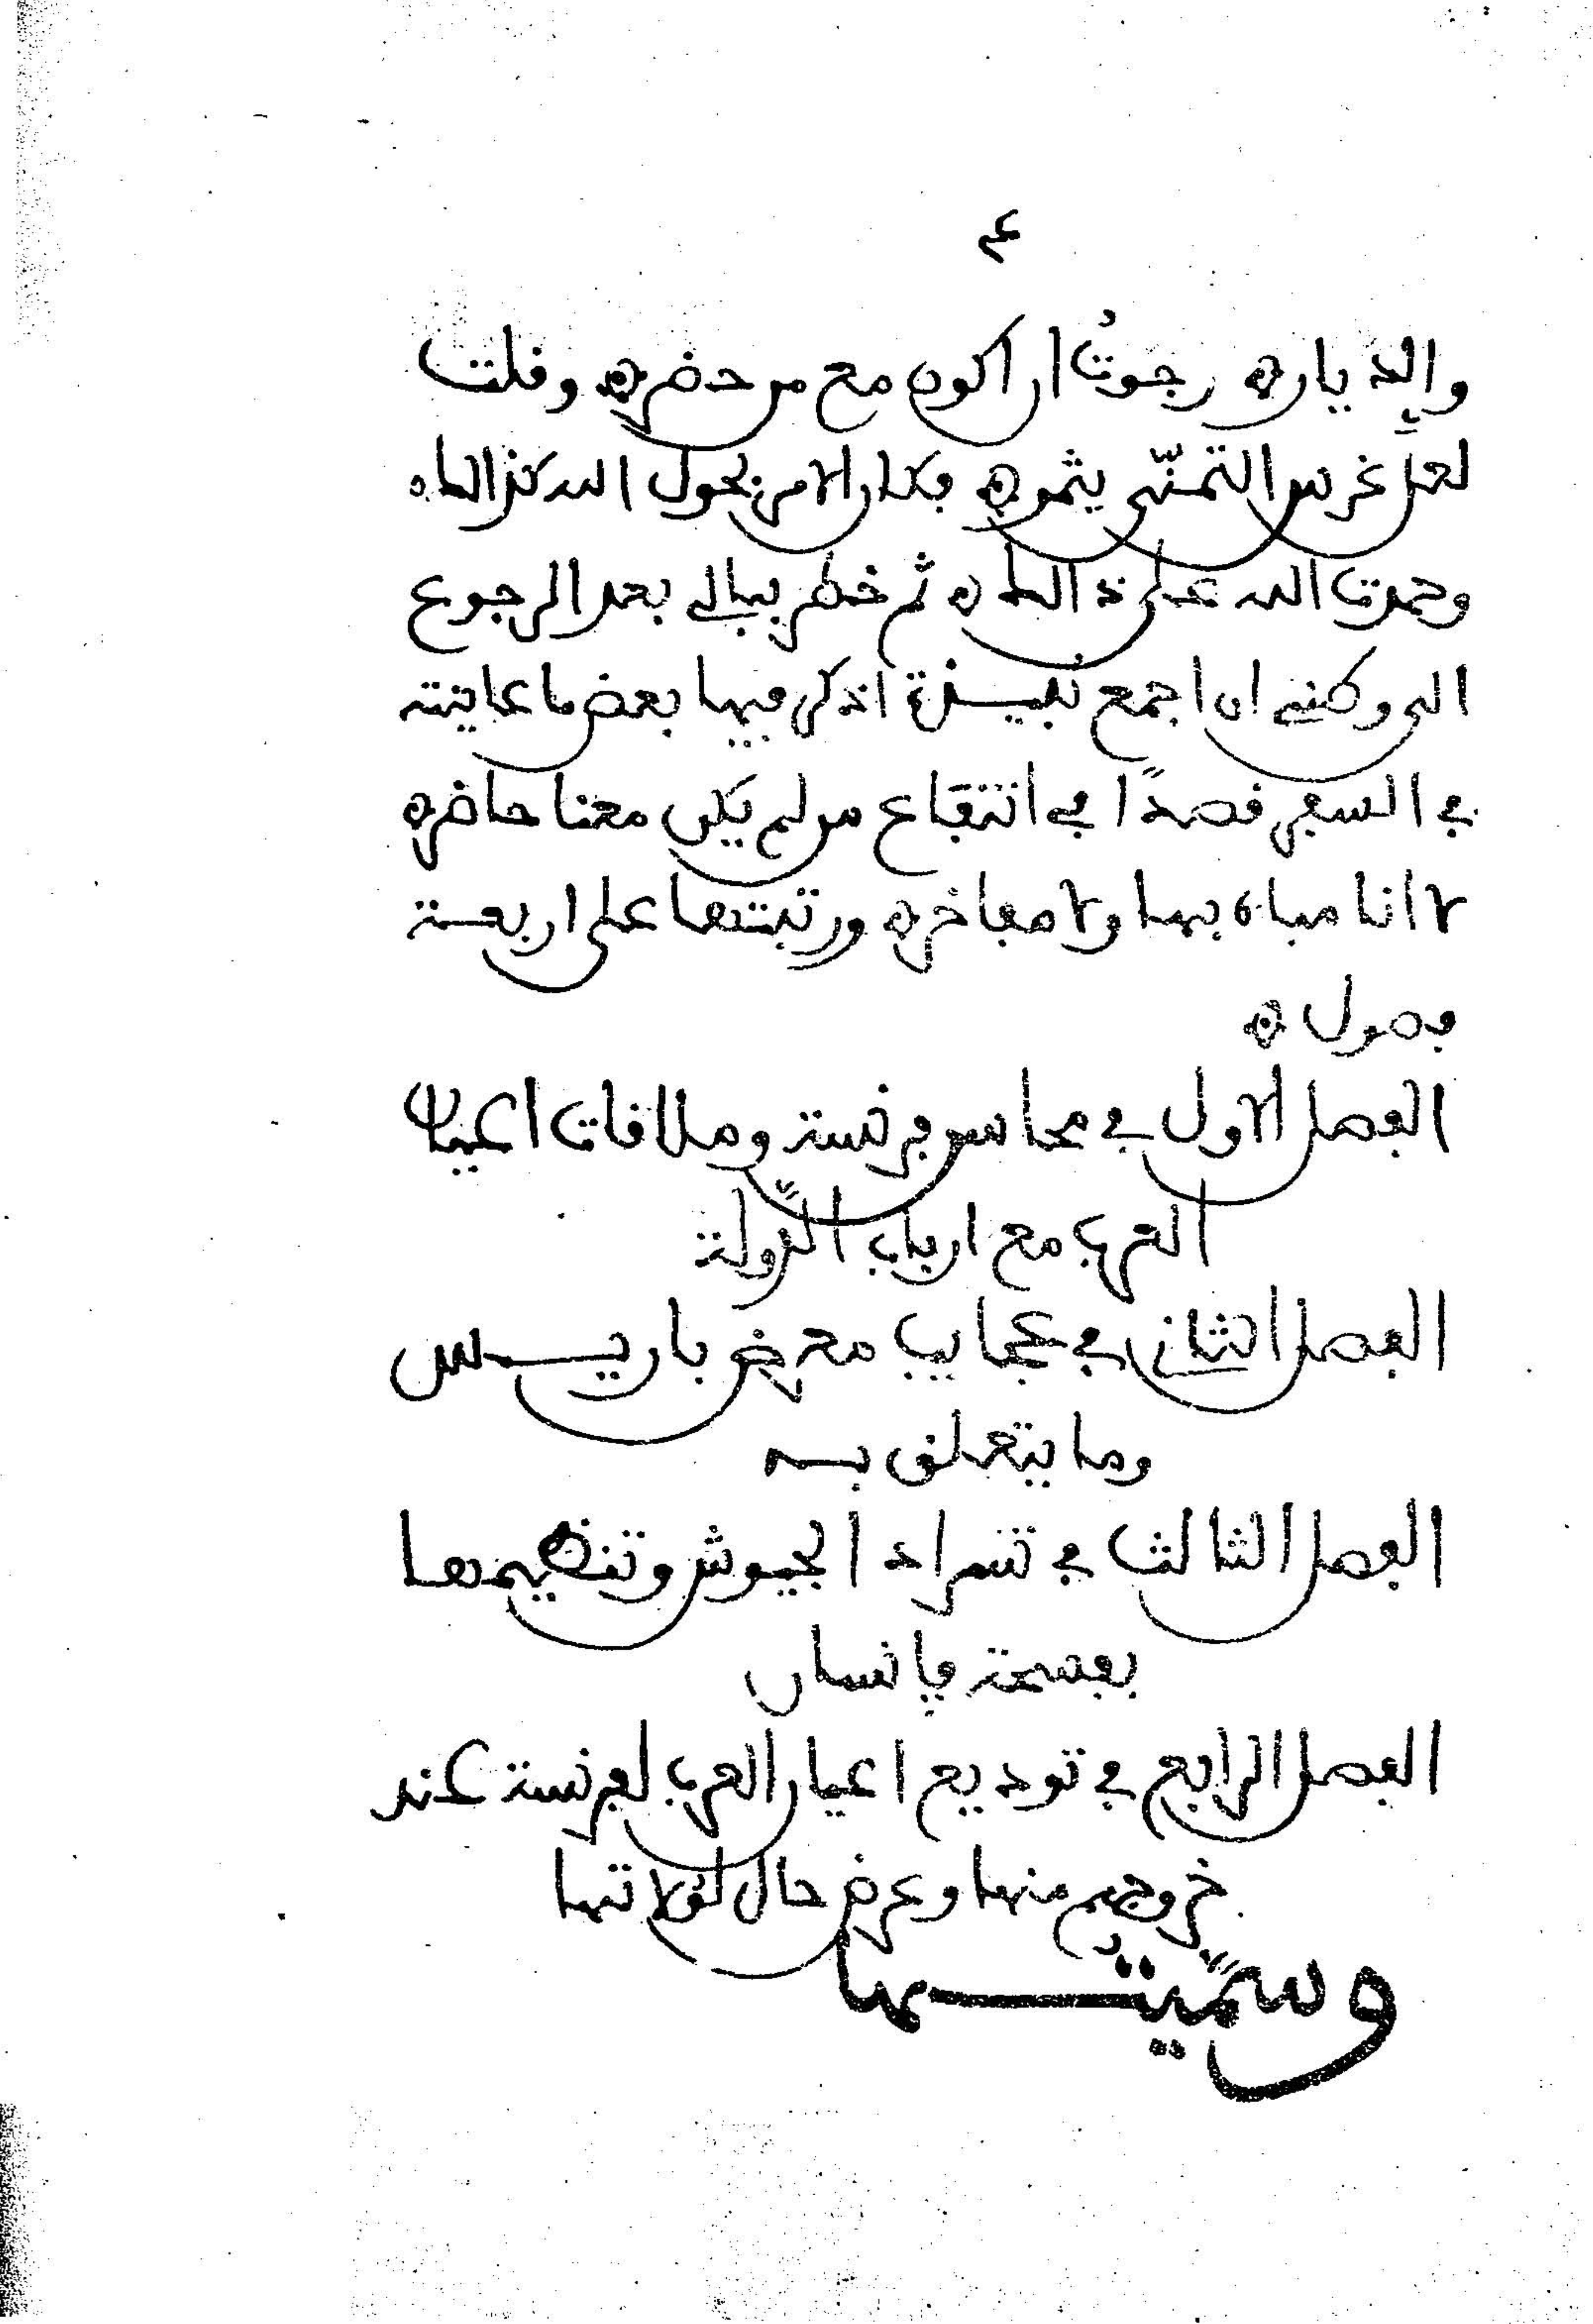 ٤
والديار ۞ رجوتُ ان اكون مع من حضر ۞ وقلت
لعل غرس التمنّى يثمر ۞ فكان الامر بحول الله كذالك ۞
وحمدت الله على ذالك ۞ ثم خطر ببالى بعد الرجوع
الى وكنى ان اجمع نُبيـذة اذكر فيها بعض ما عاينته
فى السفر قصدًا فى انتفاع من لم يكن معنا حاضر ۞
لا انا مباه بها ولا مفاخر ۞ ورتبتها على اربعـة
فصول ۞
الفصل الاول فى محاسن فرنسة وملاقات اعيان
العرب مع ارباب الدّولة
الفصل الثانى فى عجايب معرض باريـس
وما يتعلق بـه
الفصل الثالث فى تسراد الجيوش وتنظيمها
بفسحة فانسان
الفصل الرابع فى توديع اعيان العرب لفرنسة عند
خروجهم منها وعرض حال لولاتها
وسمّيتُـها